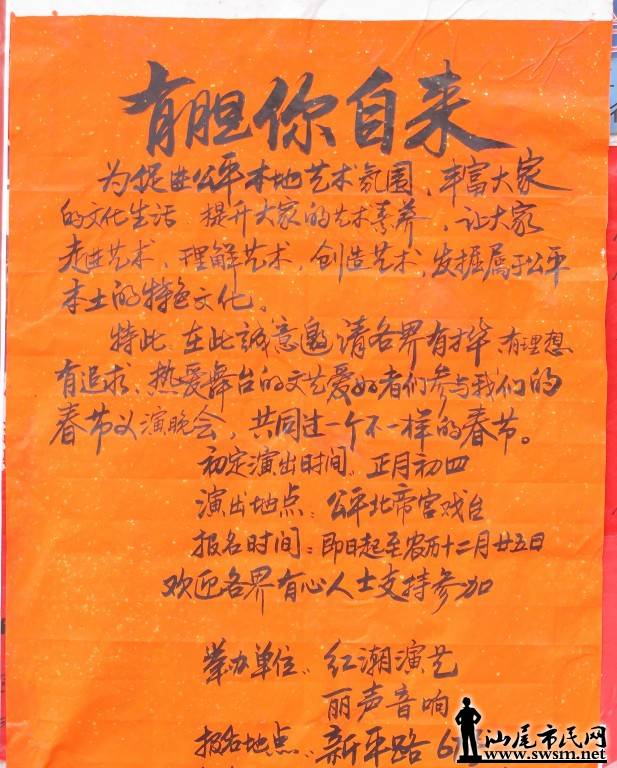 有胆你自来
为促进公平本地艺术氛围、丰富大家
的文化生活 提升大家的艺术素养,让大家
走进艺术、理解艺术,创造艺术,发掘属于公平
本土的特色文化。
特此 在此誠意邀请各界有才华、有理想
有追求、热爱舞台的文艺爱好者们参与我们的
春节义演晚会,共同过一个不一样的春节。
初定演出时间:正月初四
演出地点:公平北帝宫戏台
报名时间:即日起至农历十二月廿五日
欢迎各界有心人士支持参加
举办单位:红潮演艺
丽声音响
报名地点:新平路
汕尾市民网
www.swsm.net